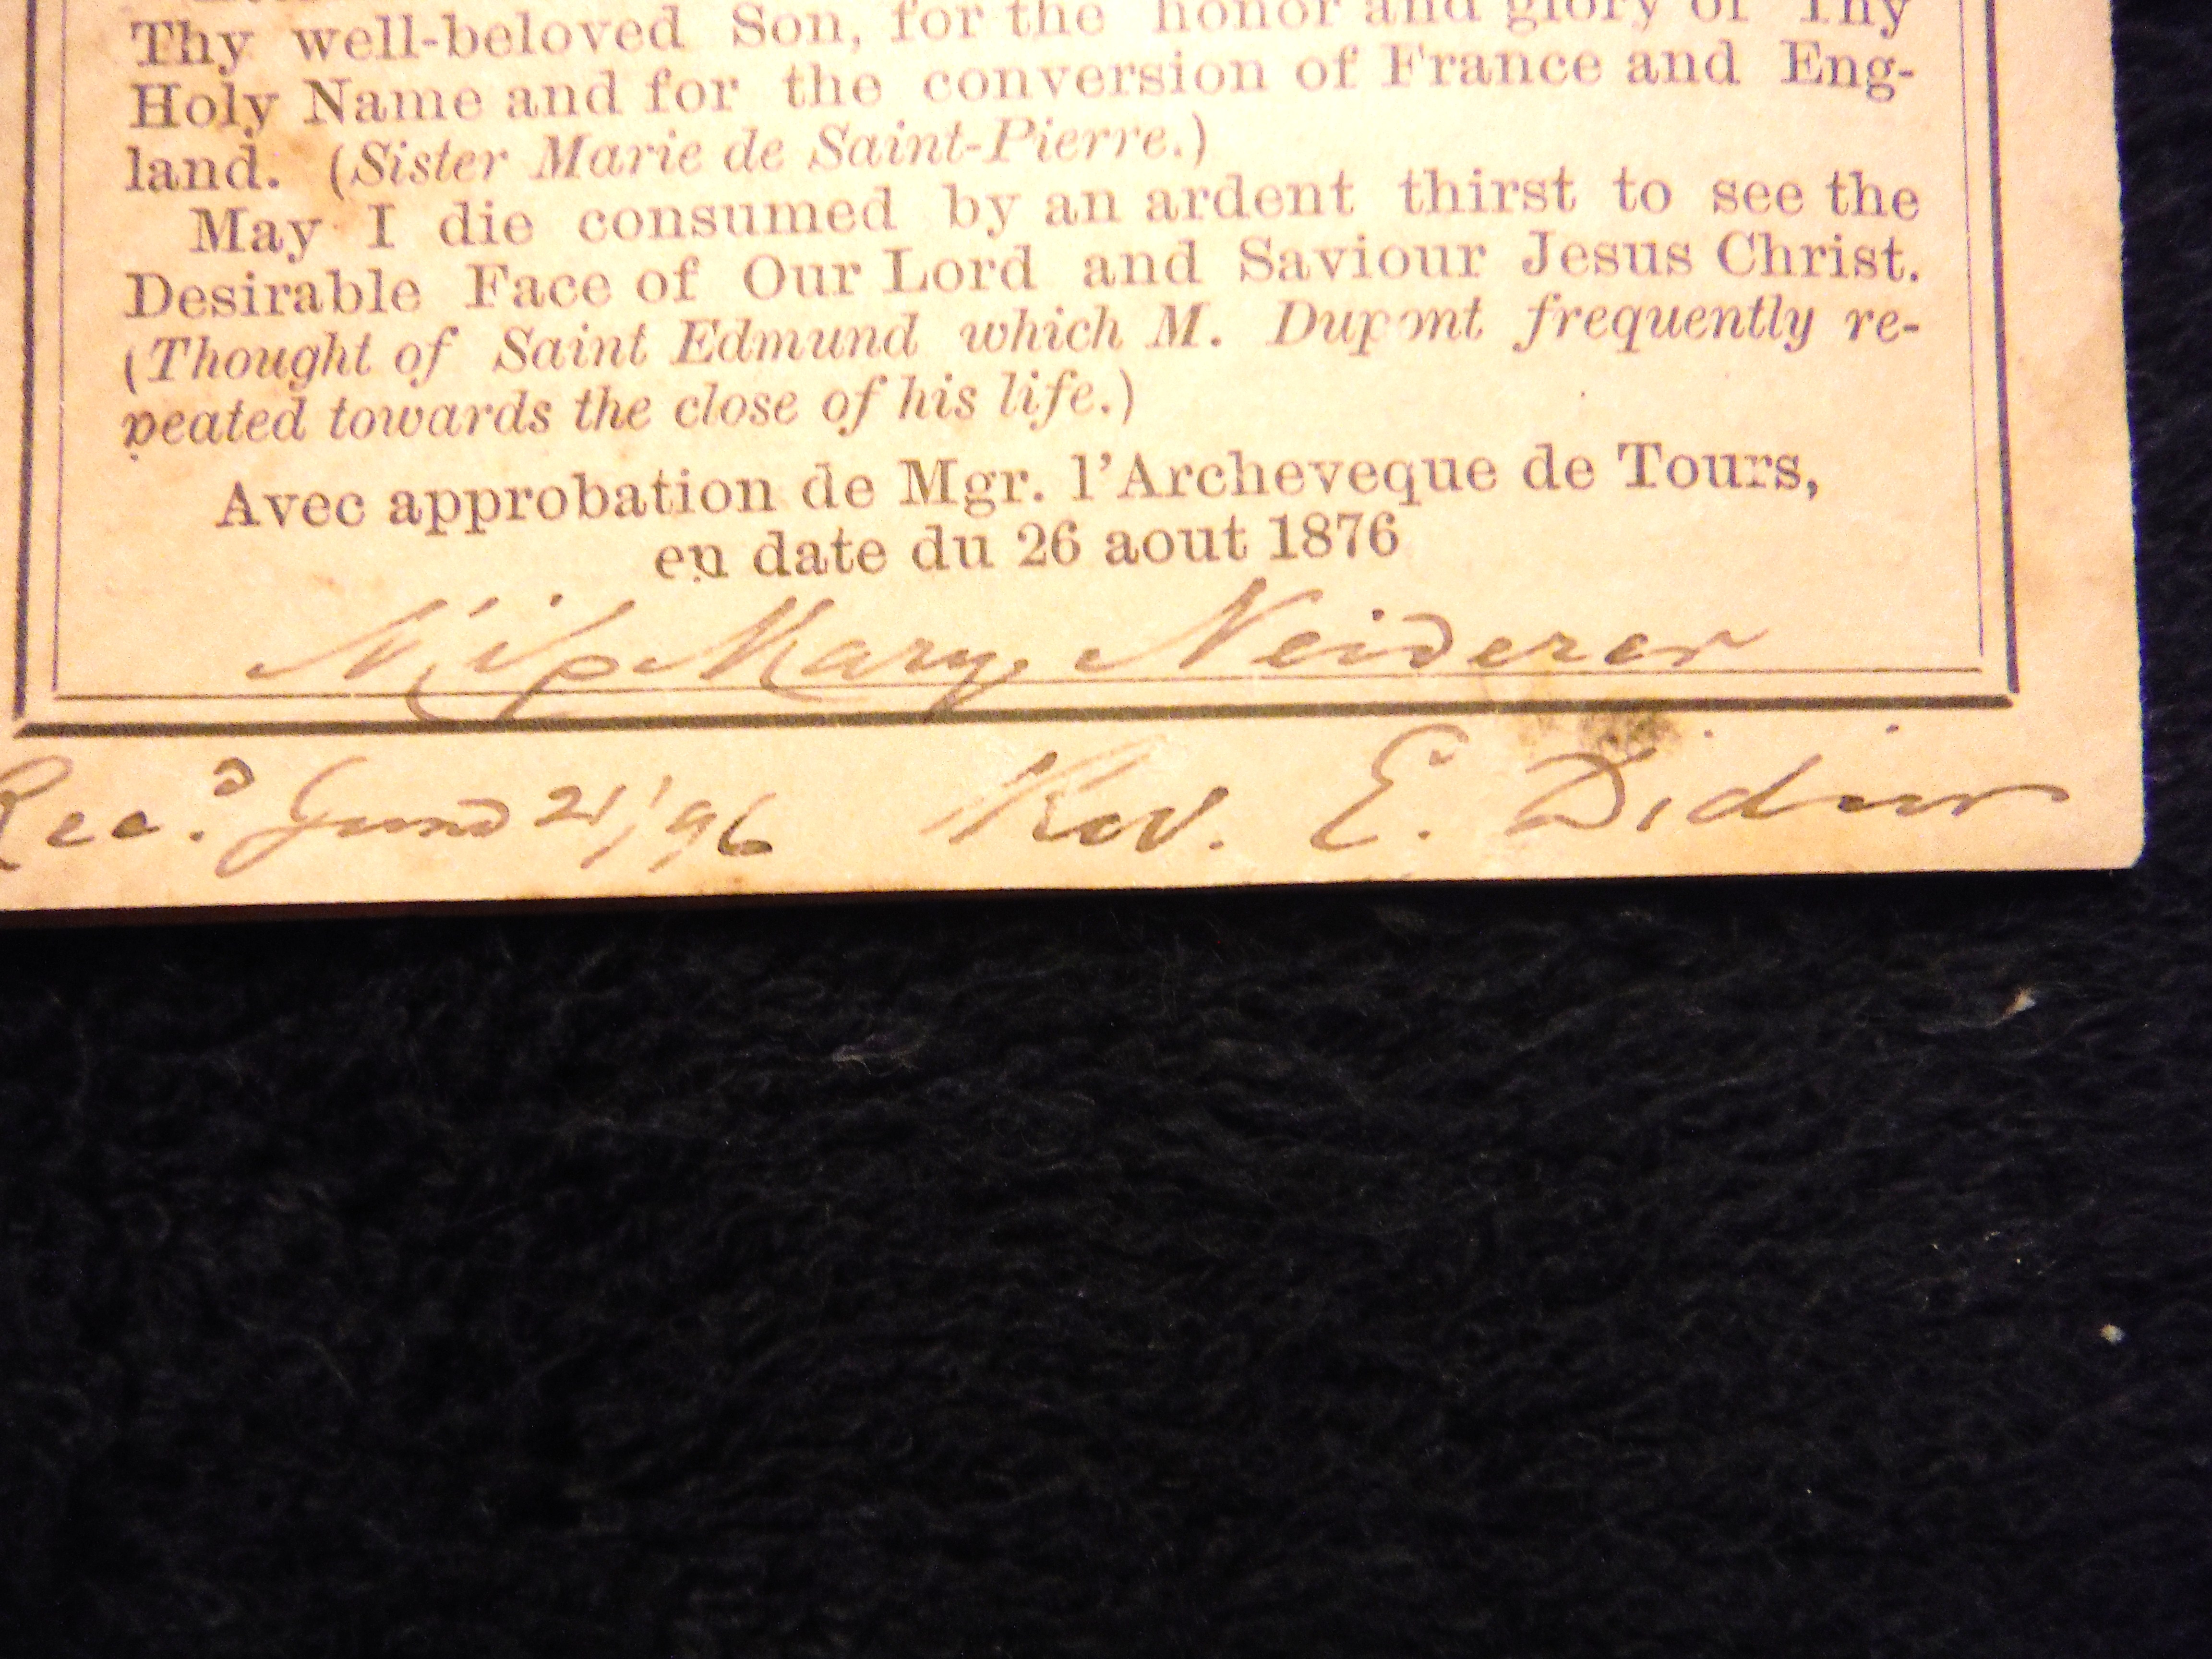 Thy well-beloved Son, for the honor and glory of Thy
Holy Name and for the conversion of France and Eng-
land. (Sister Marie de Saint-Pierre.)
May I die consumed by an ardent thirst to see the
Desirable Face of Our Lord and Saviour Jesus Christ.
(Thought of Saint Edmund which M. Dupont frequently re-
peated towards the close of his life.)
Avec approbation de Mgr. l'Archeveque de Tours,
en date du 26 aout 1876
Miſs Mary Neiderer
Rec.d June 21,'96 Rev. E. Didier